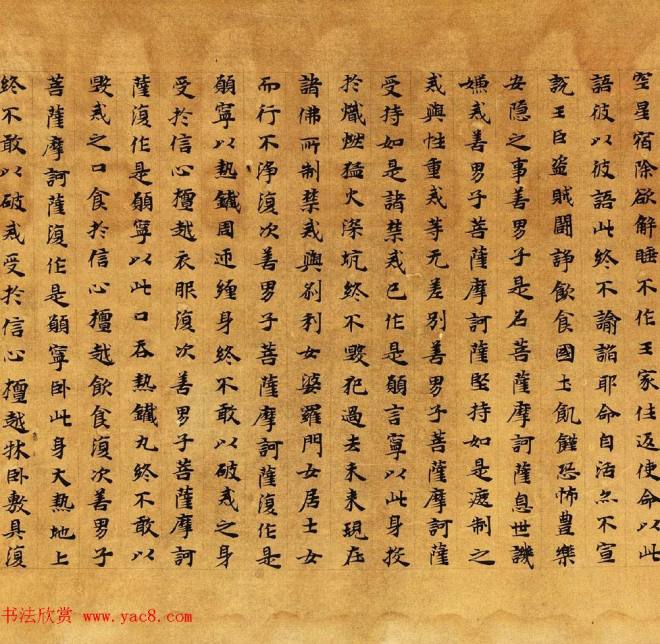 空星宿除欲解睡不作王家往返使命以此
語彼以彼語此終不諭諂耶命自活亦不宣
說王臣盜賊鬪諍飲食國土飢饉恐怖豊樂
安隱之事善男子是名菩薩摩訶薩息世譏
嫌戒善男子菩薩摩訶薩堅持如是遮制之
戒與性重戒等无差別善男子菩薩摩訶薩
受持如是諸禁戒已作是願言寧以此身投
於熾燃猛火深坑終不毀犯過去未來現在
諸佛所制禁戒與剎利女婆羅門女居士女
而行不淨復次善男子菩薩摩訶薩復作是
願寧以熱鐵周迊纏身終不敢以破戒之身
受於信心檀越衣服復次善男子菩薩摩訶
薩復作是願寧以此口吞熱鐵丸終不敢以
毀戒之口食於信心檀越飲食復次善男子
菩薩摩訶薩復作是願寧卧此身大熱地上
終不敢以破戒受於信心檀越牀卧敷具復
书法欣赏 www.yac8.com